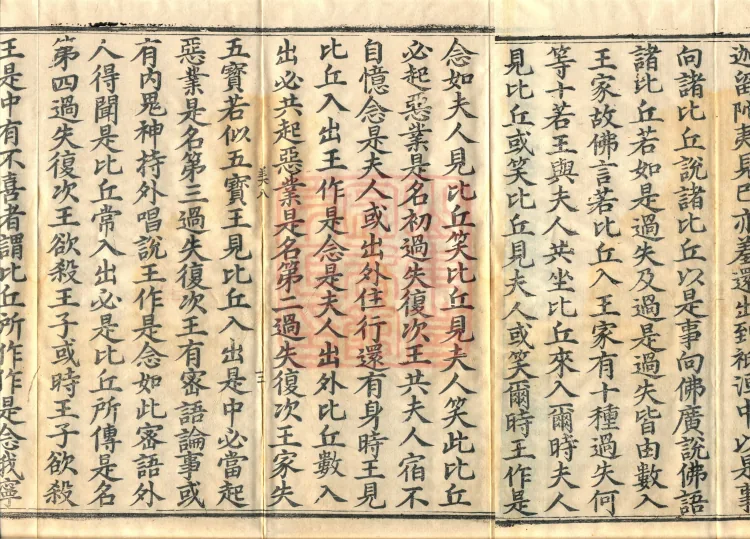 迦留陁夷見已亦羞還出到祇洹中以是事
向諸比丘說諸比丘以是事向佛廣說佛語
諸比丘若如是過失及過是過失皆由數入
王家故佛言若比丘入王家有十種過失何
等十若王與夫人共坐比丘來入爾時夫人
見比丘或笑比丘見夫人或笑爾時王作是
念如夫人見比丘笑比丘見夫人笑此比丘
必起惡業是名初過失復次王共夫人宿不
自憶念是夫人或出外住行還有身時王見
比丘入出王作是念是夫人出外比丘數入
出必共起惡業是名第二過失復次王家失
五寶若似五寶王見比丘入出是中必當起
惡業是名第三過失復次王有密語論事或
有內鬼神持外唱說王作是念如此密語外
人得聞是比丘常入出必是比丘所傳是名
第四過失復次王欲殺王子或時王子欲殺
王是中有不喜者謂比丘所作作是念我寧